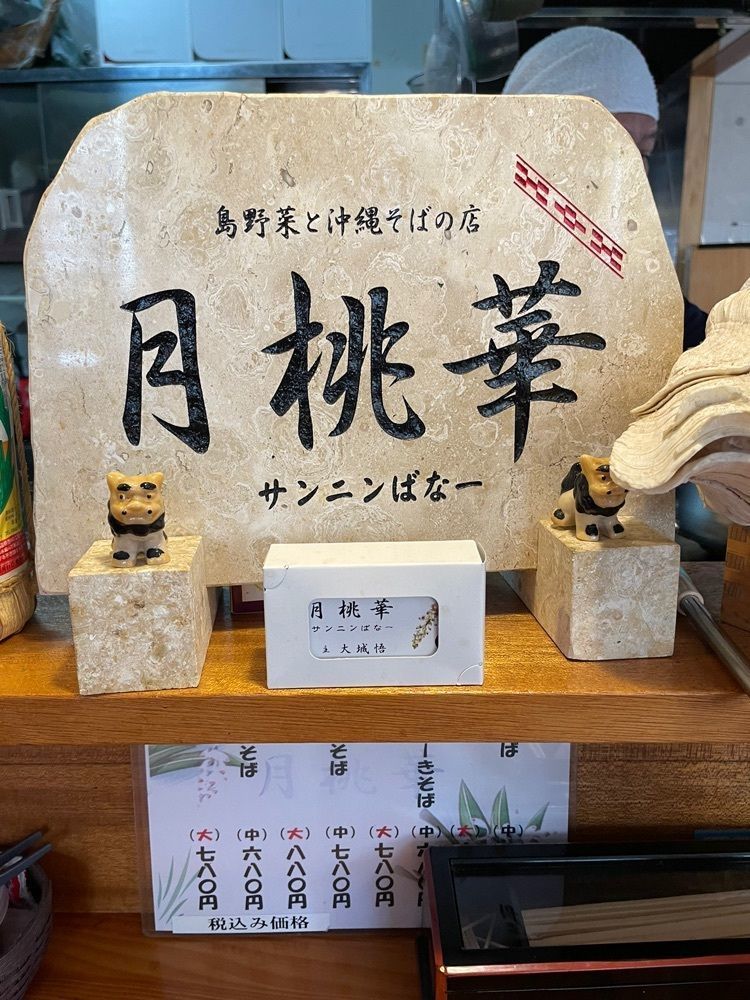 島野菜と沖縄そばの店
月桃華
サンニンばなー
月桃華
サンニンばなー
主 大城悟
そば
そば
ーきそば
ば
月桃華
(大) 七八〇円
(中) 六八〇円
(大) 八八〇円
(中) 七八〇円
(大) 七八〇円
(中) 六
(大)
(中)
税込み価格